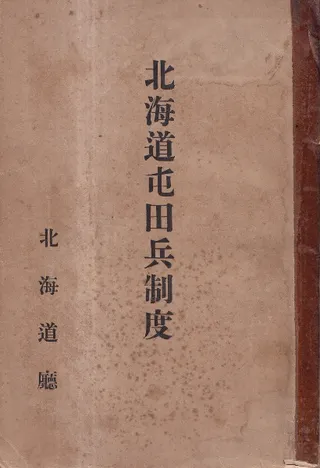 北海道屯田兵制度
北海道廳